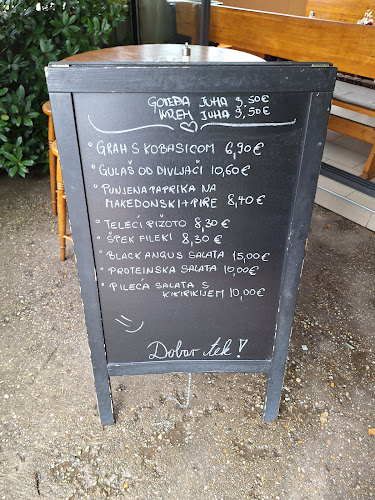 GOVEĐA JUHA 3,50€
KREM JUHA 3,50€
° GRAH S KOBASICOM 6,90€
° GULAŠ OD DIVLJAČI 10,60€
° PUNJENA PAPRIKA NA
MAKEDONSKI + PIRE 8,40€
° TELEĆI RIŽOTO 8,30€
° ŠPEK FILEKI 8,30€
° BLACK ANGUS SALATA 15,00€
° PROTEINSKA SALATA 10,00€
° PILEĆA SALATA S
KIKIRIKIJEM 10,00€
Dobar tek!